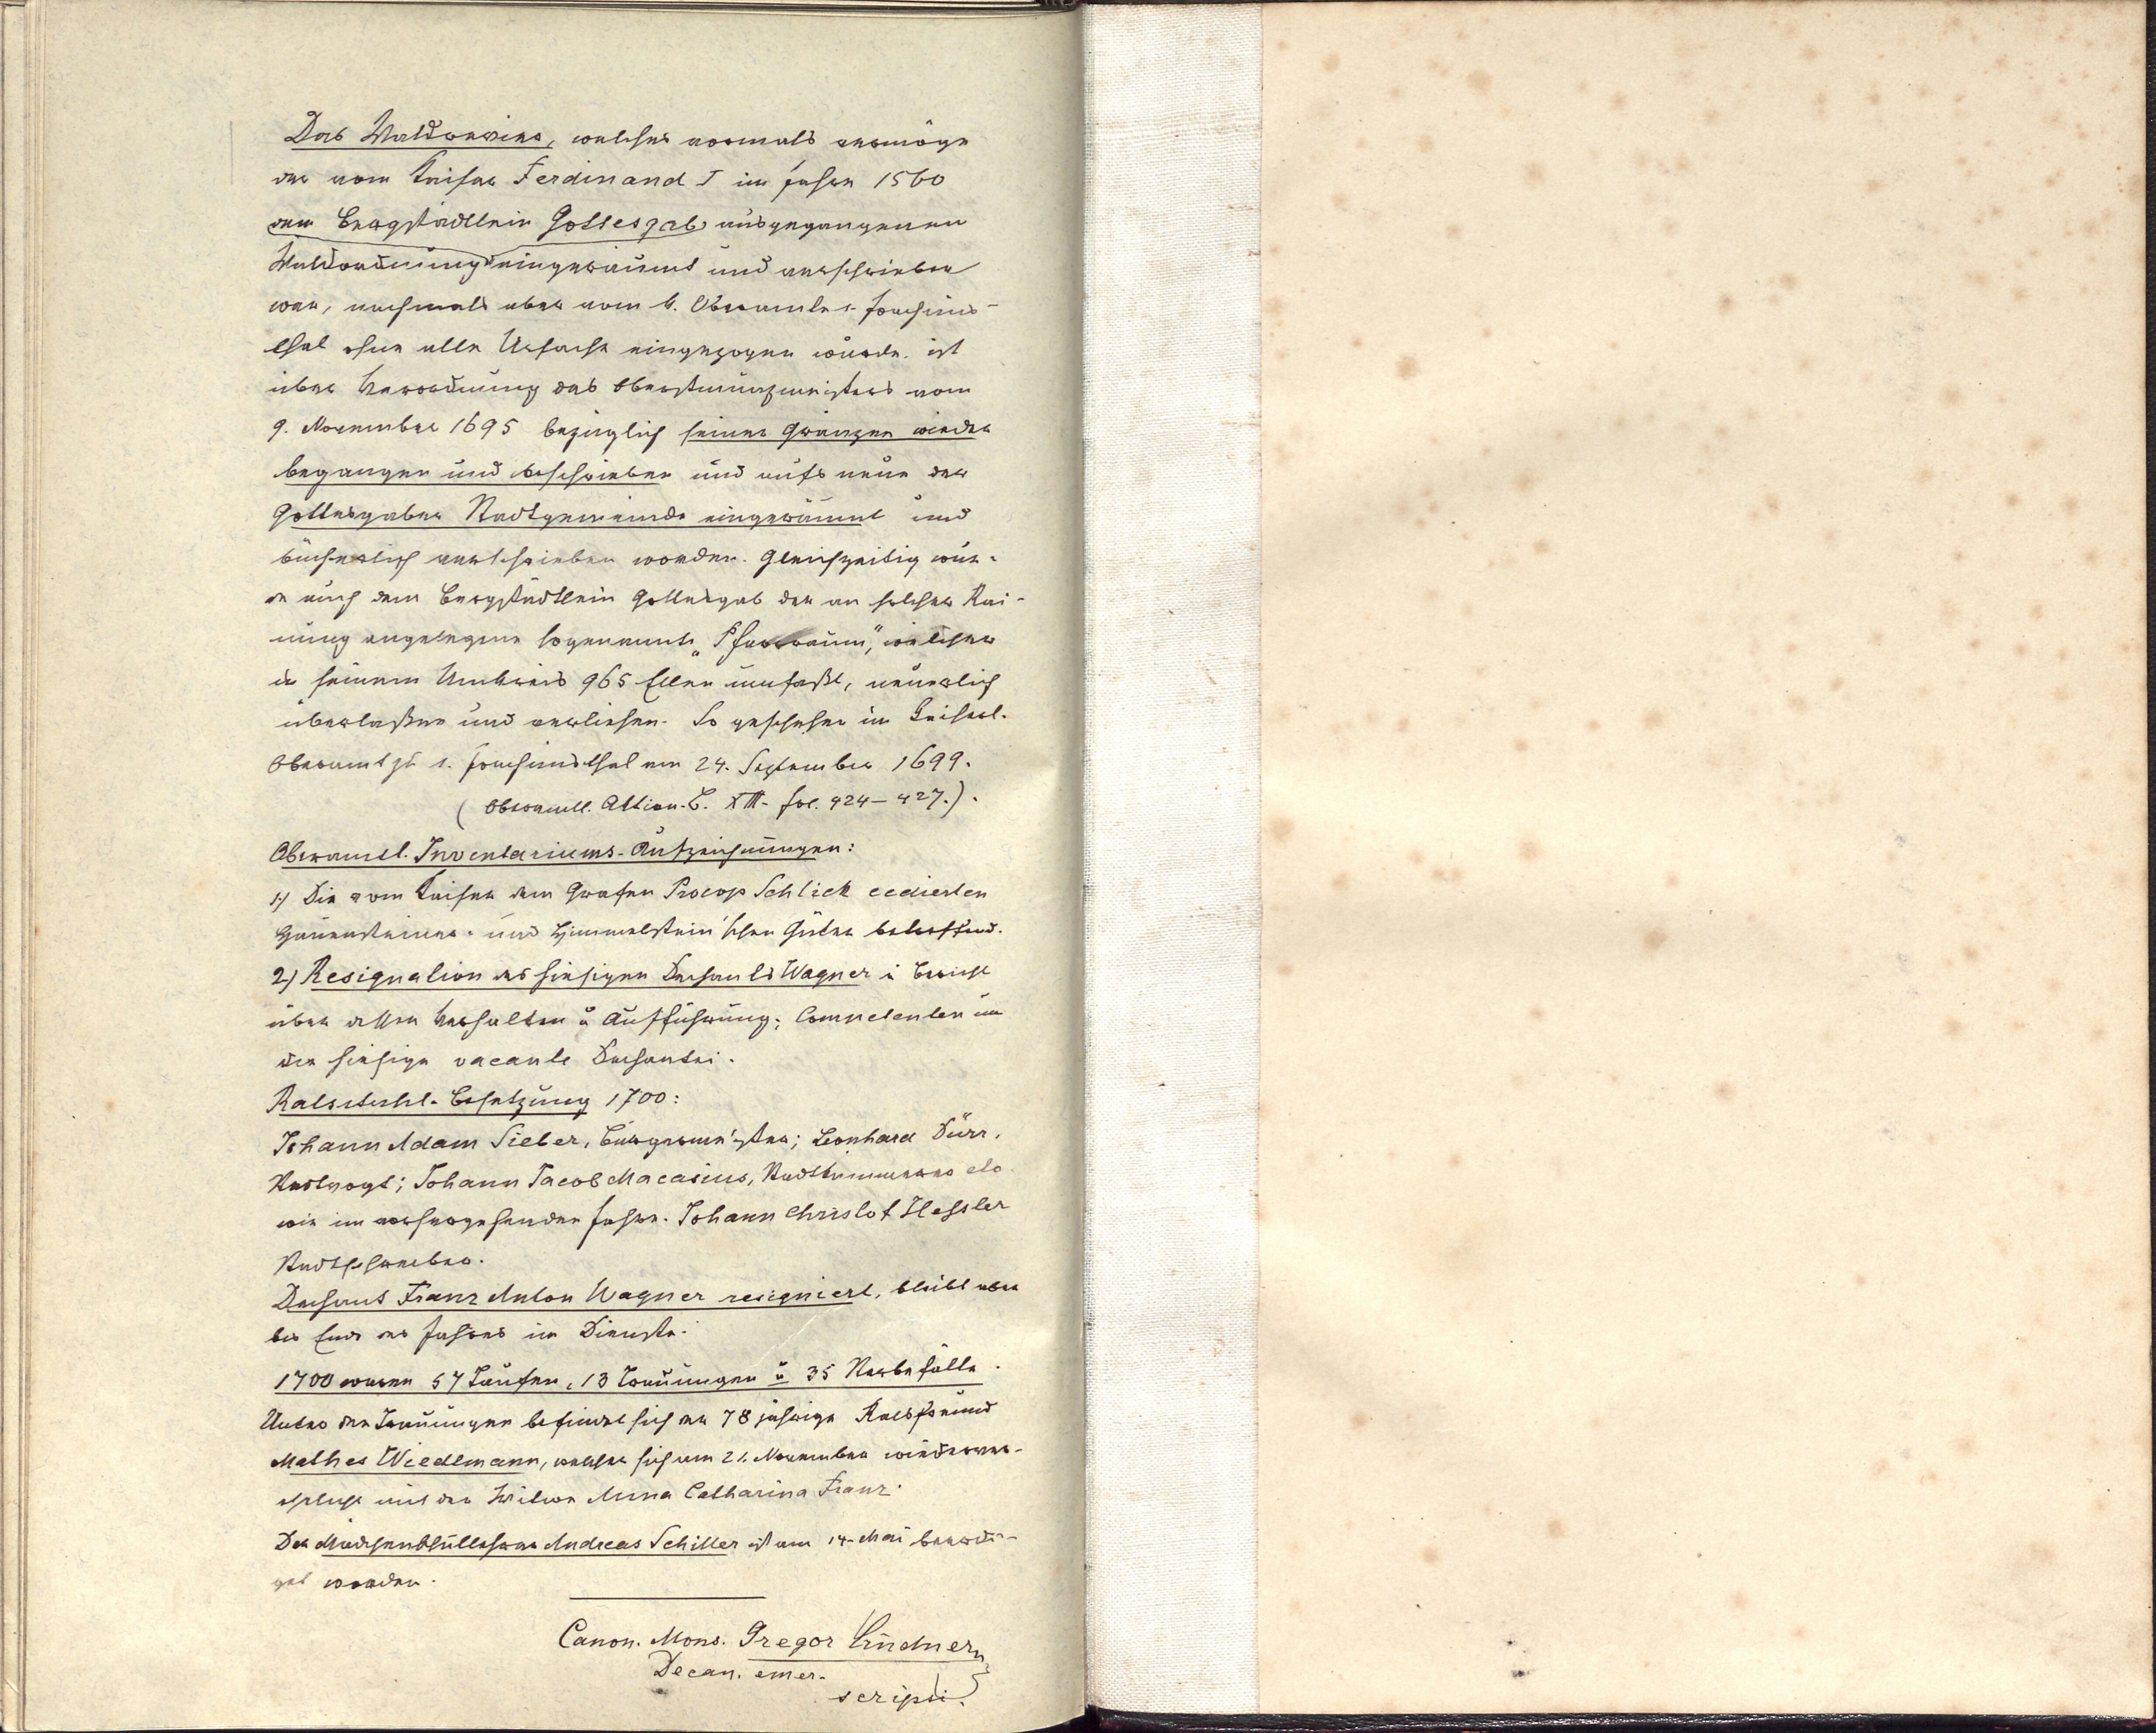 Das Waldrevier, welches vormals vermöge
der vom Kaiser Ferdinand I im Jahre 1560
dem Bergstädtlein Gottesgab ausgegangenen
Waldordnung eingeräumt und verschrieben
war, nachmals aber vom k. Oberamte s. Joachims-
thal ohne alle Ursache eingezogen wurde, ist
über Verordnung des Oberstmünzmeisters vom
9. November 1695 bezüglich seiner Gränzen wieder
begangen und beschrieben und aufs neue der
Gottesgaber Stadtgemeinde eingeräumt und
bücherlich verschrieben worden. Gleichzeitig wur-
de auch dem Bergstädtlein Gottesgab der an solcher Rai-
nung angelegene sogenannte „Pfarrraum“, welcher
in seinem Umkreis 965 Ellen umfaßt, neuerlich
überlaßen und verliehen. So geschehen im Kaiserl.
Oberamt zu s. Joachimsthal am 24. September 1699.
(Oberamtl. Aktion. B. XIII. fol. 424–427.).
Oberamtl. Inventariums-Aufzeichnungen:
1.) Die vom Kaiser dem Grafen Procop Schlick cedierten
Hauensteiner- und Himmelstein'schen Güter betreffend.
2.) Resignation des hiesigen Dechants Wagner u Bericht
über dessen Verhalten u Aufführung; Competenten um
die hiesige vacante Dechantei.
Ratsstuhl-Besetzung 1700:
Johann Adam Sieber, Bürgermeister; Leonhard Dürr,
Stadtvogt; Johann Jacob Macasius, Stadtkämmerer etc.
wie im vorhergehenden Jahre. Johann Christof Heßler
Stadtschreiber.
Dechant Franz Anton Wagner resigniert, bleibt aber
bis Ende des Jahres im Dienste.
1700 waren 57 Taufen, 13 Trauungen u 35 Sterbefälle.
Unter den Trauungen befindet sich der 78 jährige Ratsfreund
Mathes Wiedlmann, welcher sich am 21. November wiederver-
ehelicht mit der Witwe Anna Catharina Franz.
Der Mädchenschullehrer Andreas Schiller ist am 14. Mai beerdi-
get worden.
Canon. Mons. Gregor Lindner,
Decan. emer.
scripsi.